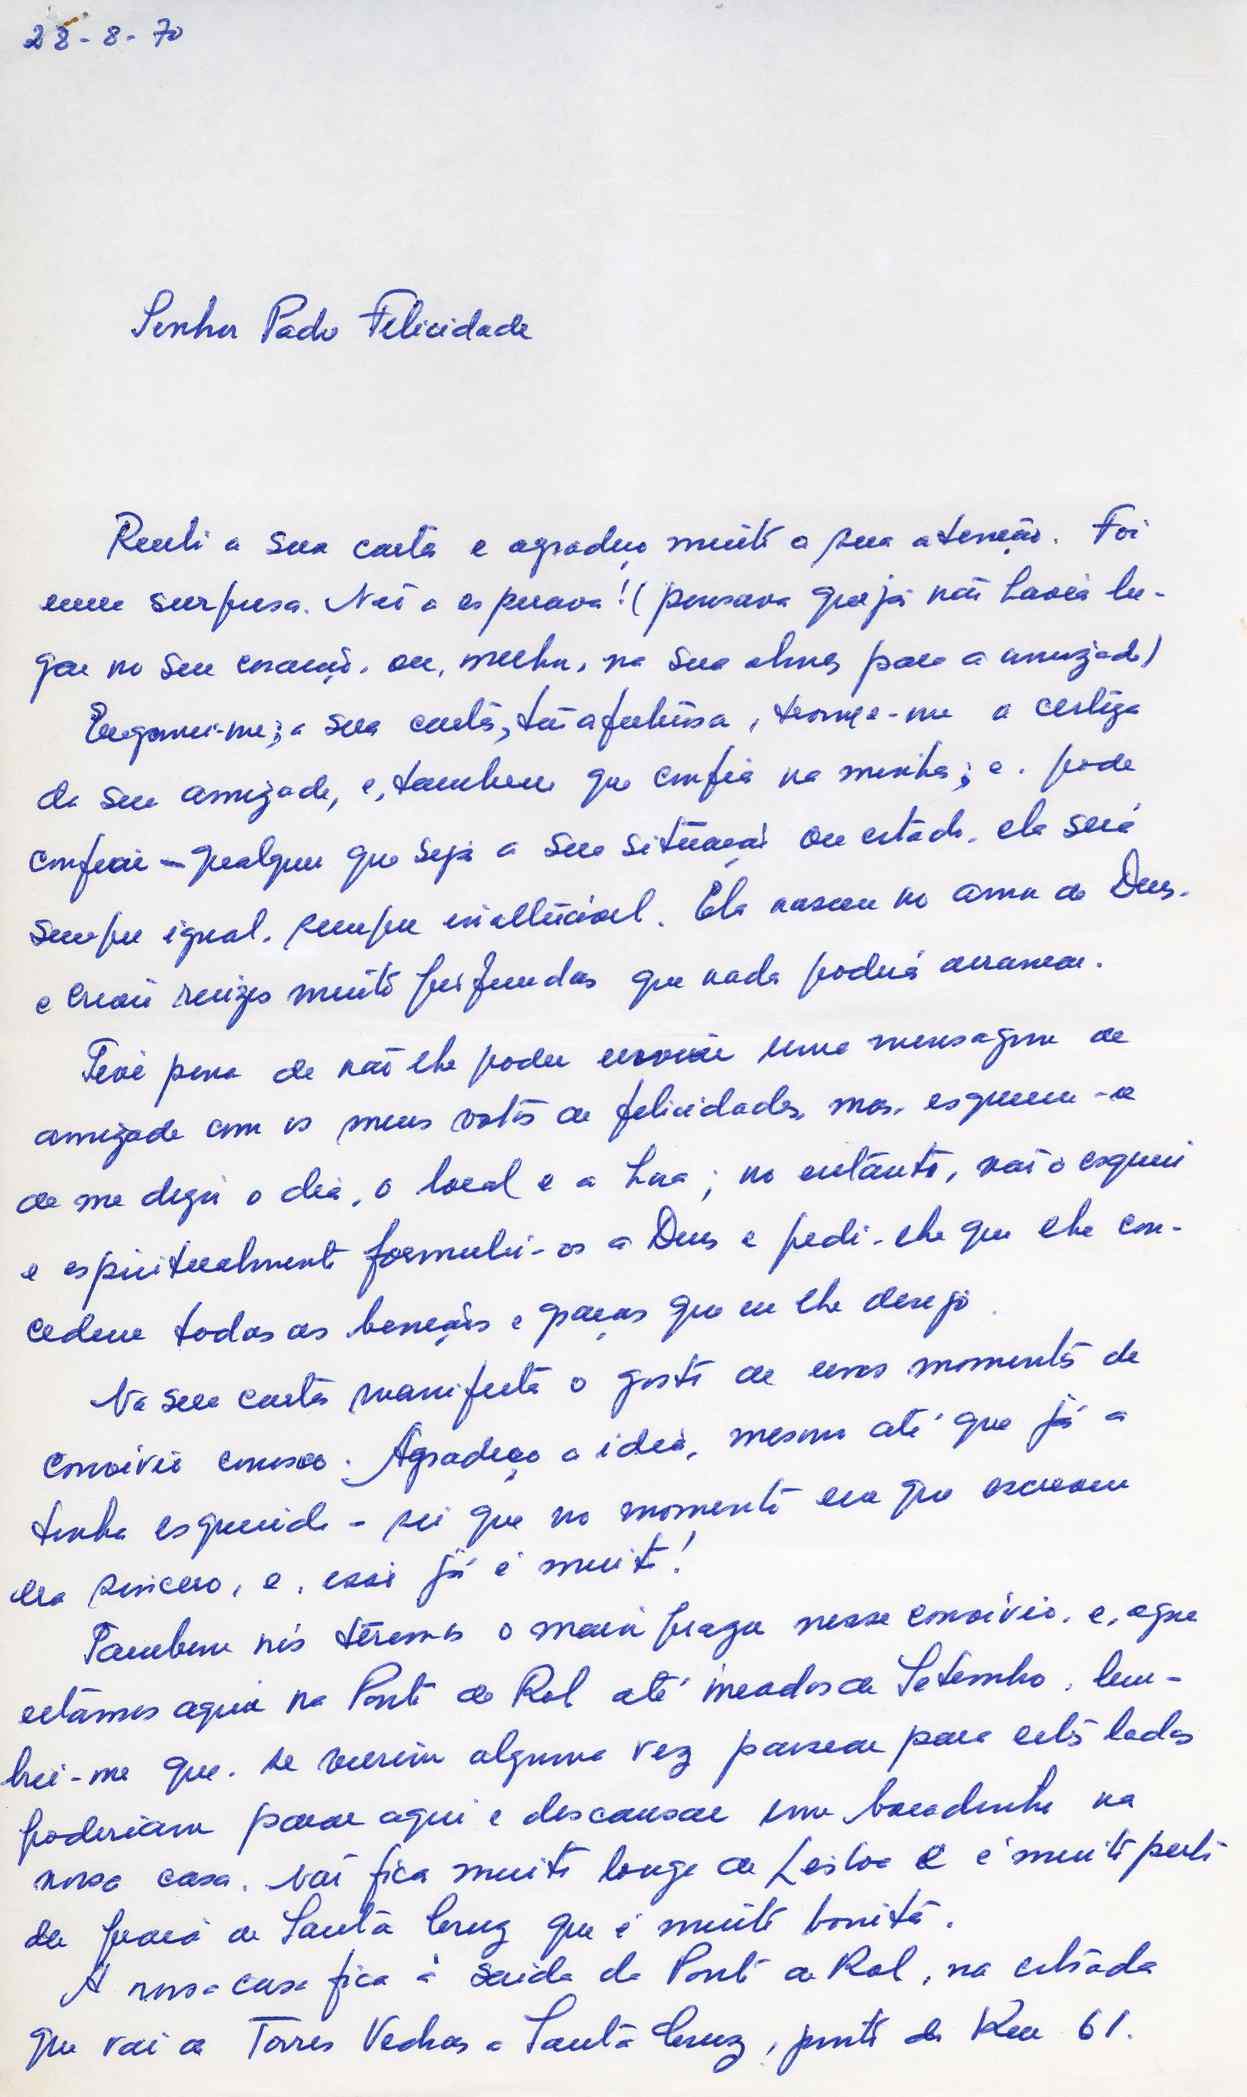 28-8-70
Senhor Padre Felicidade
Recebi a sua carta e agradeço muito a sua atenção. Foi
uma surpresa. Não a esperava! (pensava que já não havia lu-
gar no seu coração, ou, melhor, na sua alma, para a amizade)
Enganei-me; a sua carta, tão afectuosa, trouxe-me a certeza
da sua amizade, e, tambem que confia na minha; e. pode
confiar - qualquer que seja a sua situação ou estado. ela será
sempre igual. sempre inalterável. Ela nasceu no amor de Deus.
e criou raizes muito profundas que nada poderá arrancar.
Tive pena de não lhe poder enviar uma mensagem de
amizade com os meus votos de felicidades, mas. esqueceu-se
de me dizer o dia, o local e a hora; no entanto, não o esqueci
e espiritualmente formulei-os a Deus e pedi-lhe que lhe con-
cedesse todas as bençãos e graças que eu lhe desejo.
Na sua carta manifesta o gosto de uns momentos de
convivio conosco. Agradeço a ideia, mesmo até que já a
tenha esquecido - sei que no momento em que escreveu
era sincero, e, isso já é muito!
Tambem nós teremos o maior prazer nesse convivio. e, como
estamos aqui na Ponte do Rol até meados de Setembro, lem-
brei-me que. se vierem alguma vez passear para estes lados
poderiam parar aqui e descansar um bocadinho na
nossa casa. Não fica muito longe de Lisboa e é muito perto
da praia de Santa Cruz que é muito bonita.
A nossa casa fica à saida da Ponte do Rol, na estrada
que vai de Torres Vedras a Santa Cruz, junto do Km 61.